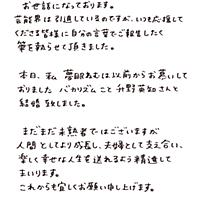 お世話になっております。
芸能界は引退しているのですが、いつも応援して
くださる皆様に自分の言葉でご報告したく
筆を執らせて頂きました。
本日、私 夢眠ねむは以前からお慕いして
おりました バカリズムこと 升野英知さんと
結婚 致しました。
まだまだ未熟者ではございますが
人間としてより成長し、夫婦として支え合い、
楽しく幸せな人生を送れるよう精進して
まいります。
これからも宜しくお願い申し上げます。